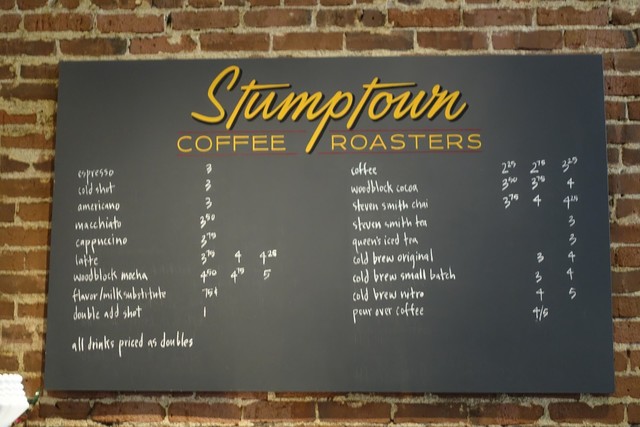 Stumptown
COFFEE ROASTERS
espresso 3
cold shot 3
americano 3
macchiato 3 50
cappuccino 3 75
latte 3 75 4 4 25
woodblock mocha 4 50 4 75 5
flavor/milk substitute 75¢
double add shot 1
all drinks priced as doubles
coffee 2 25 2 75 3 25
woodblock cocoa 3 50 3 75 4
steven smith chai 3 75 4 4 25
steven smith tea 3
queen's iced tea 3
cold brew original 3 4
cold brew small batch 3 4
cold brew nitro 4 5
pour over coffee 4/5